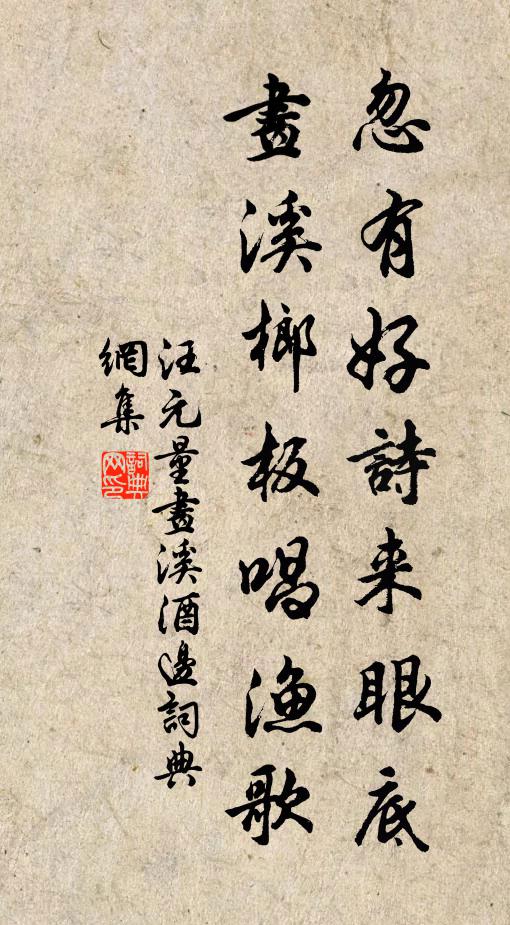 忽有好詩来眼底
畫溪榔板唱漁歌
汪元量畫溪酒邊詞典
網集
詞典
网印